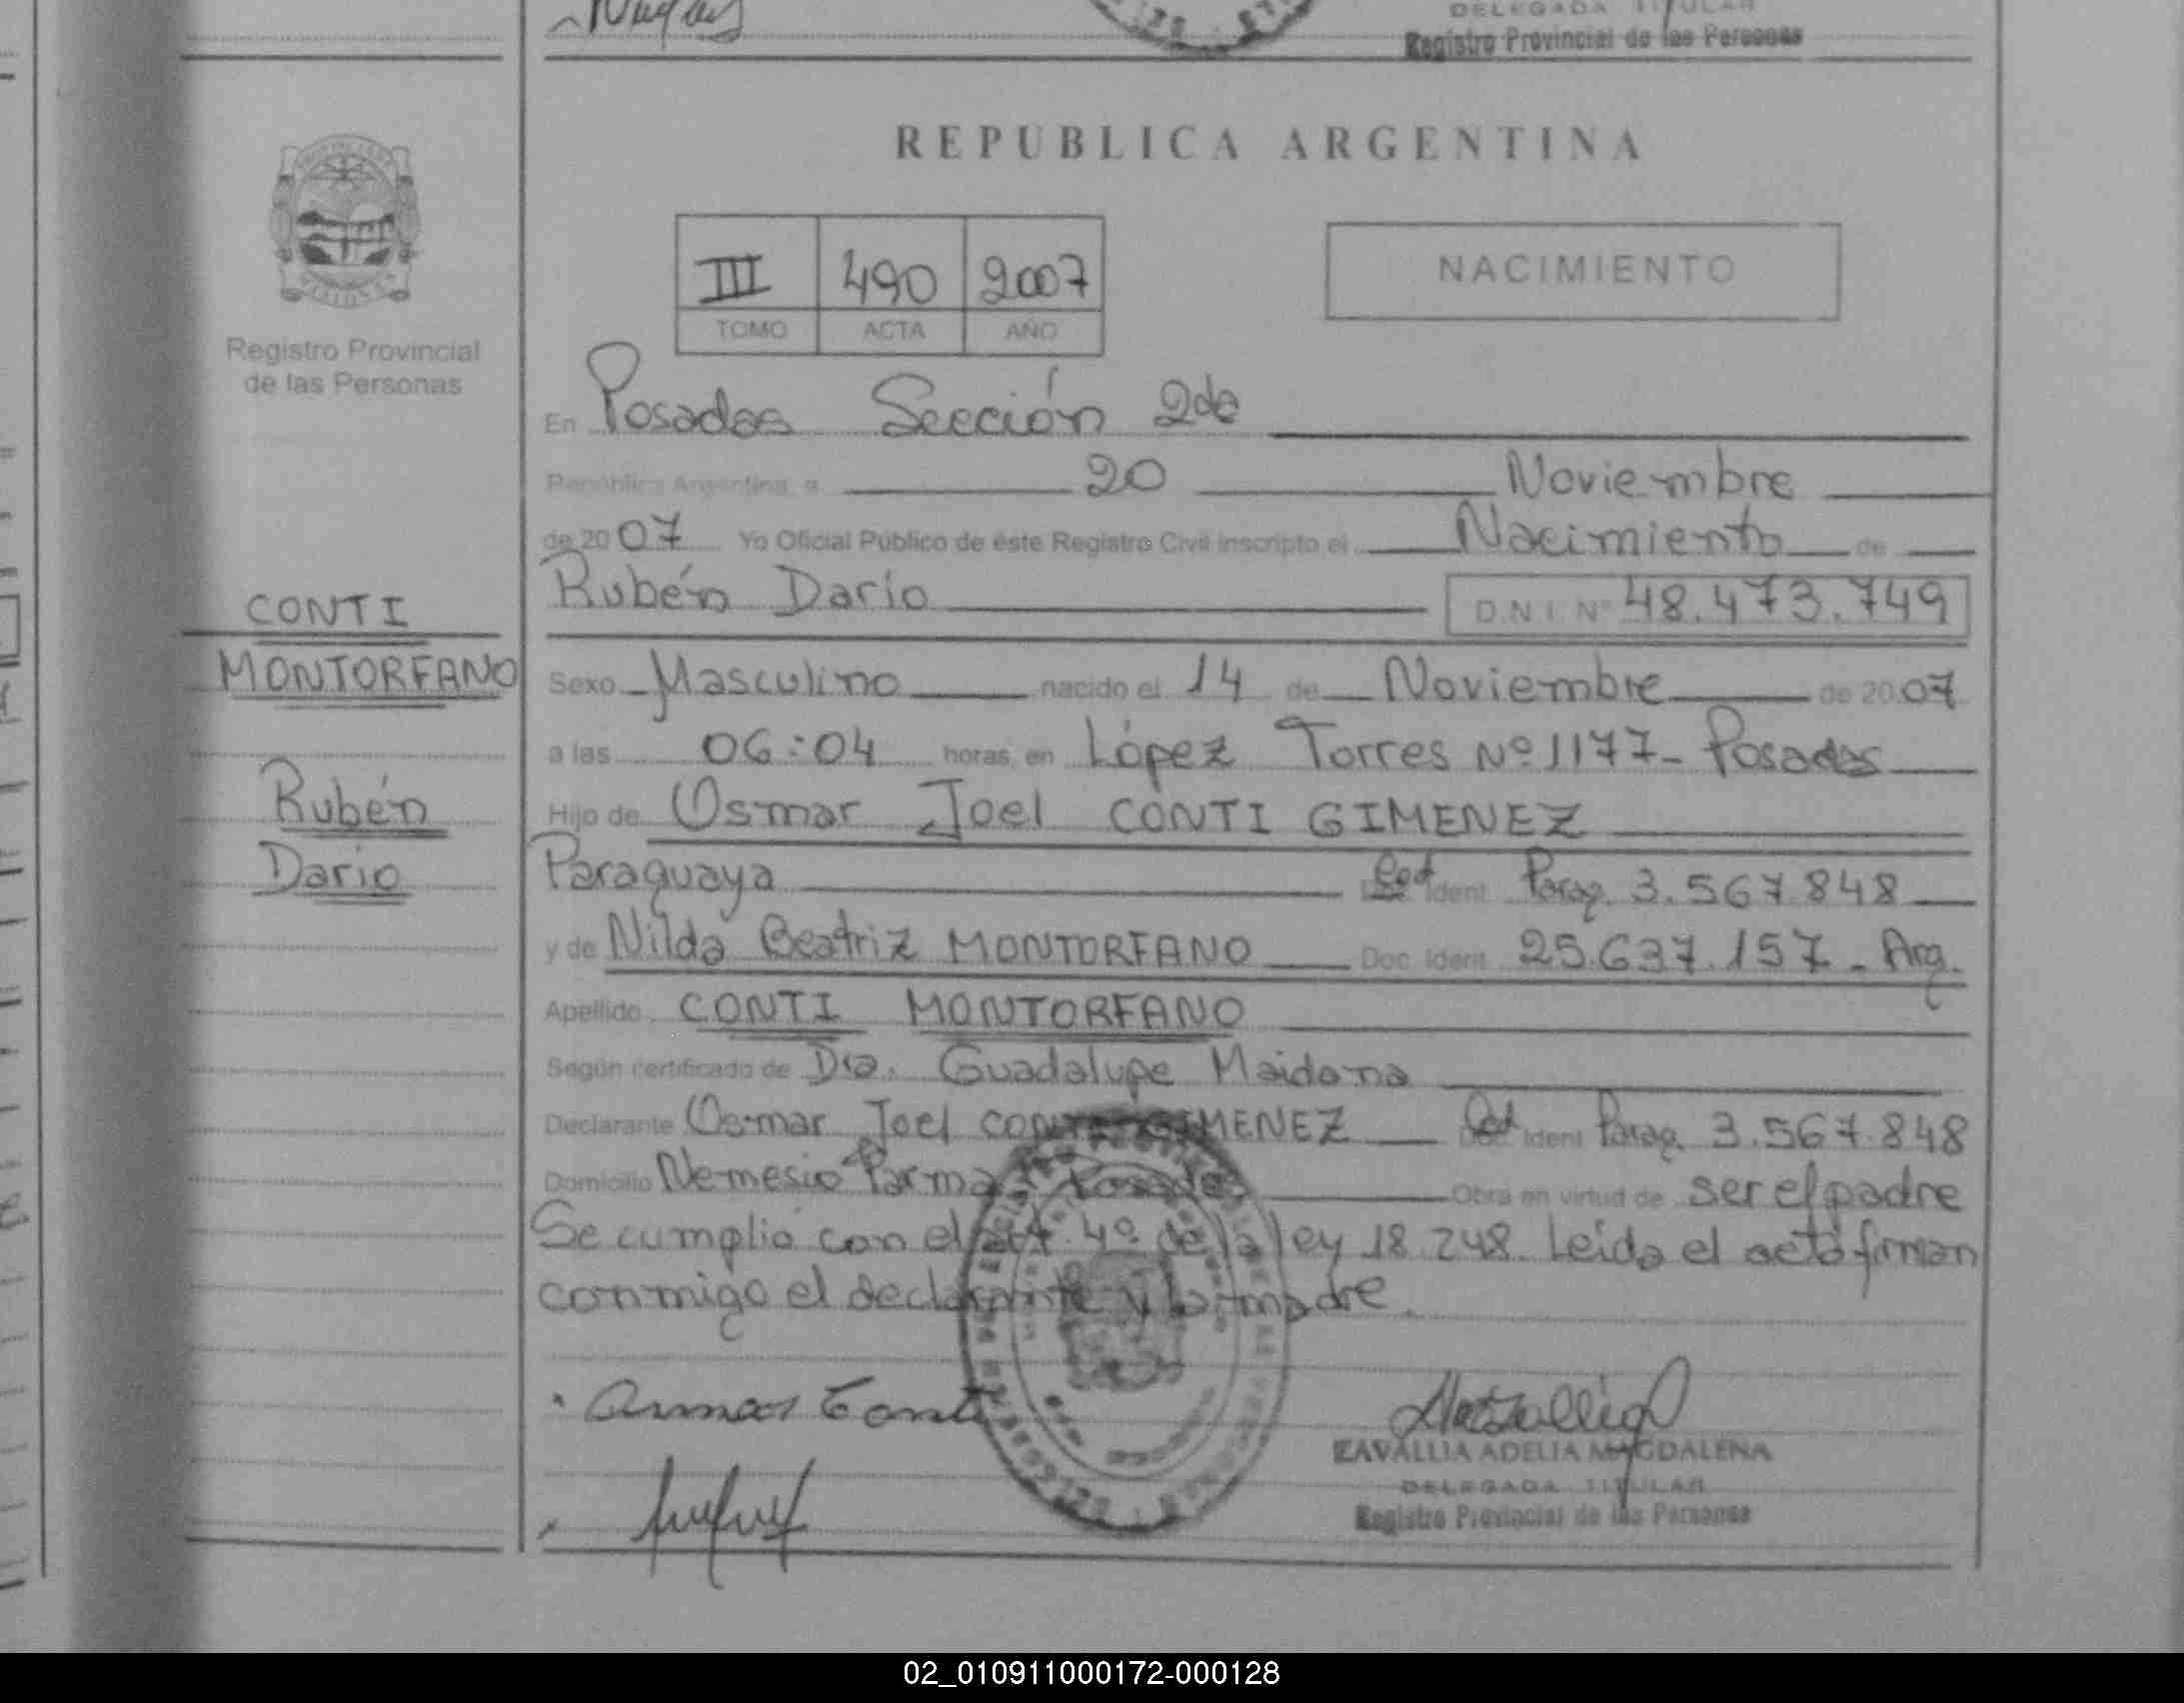 DELEGADA TITULAR
Registro Provincial de las Personas
REPUBLICA ARGENTINA
III 490 2007
TOMO ACTA AÑO
NACIMIENTO
Registro Provincial
de las Personas
CONTI
MONTORFANO
Rubén
Dario
En Posadas Sección 2da
República Argentina, a 20 Noviembre
de 2007 Yo Oficial Público de éste Registro Civil inscripto el Nacimiento de
Rubén Darío D.N.I. Nº 48.473.749
Sexo Masculino nacido el 14 de Noviembre de 2007
a las 06:04 horas, en López Torres Nº 1177- Posadas
Hijo de Osmar Joel CONTI GIMENEZ
Paraguaya Ced Ident. Parag. 3.567.848
y de Nilda Beatriz MONTORFANO Doc. Ident. 25.637.157 - Arg.
Apellido CONTI MONTORFANO
Según certificado de Dra. Guadalupe Maidana
Declarante Osmar Joel CONTI GIMENEZ Ced Ident Parag. 3.567.848
Domicilio Nemesio Parma Posadas Obra en virtud de ser el padre
Se cumplió con el art. 4º de la ley 18.248. Leída el acta firman
conmigo el declarante y la madre.
Conti
ZAVALLIA ADELIA MAGDALENA
DELEGADA TITULAR
Registro Provincial de las Personas
02_010911000172-000128